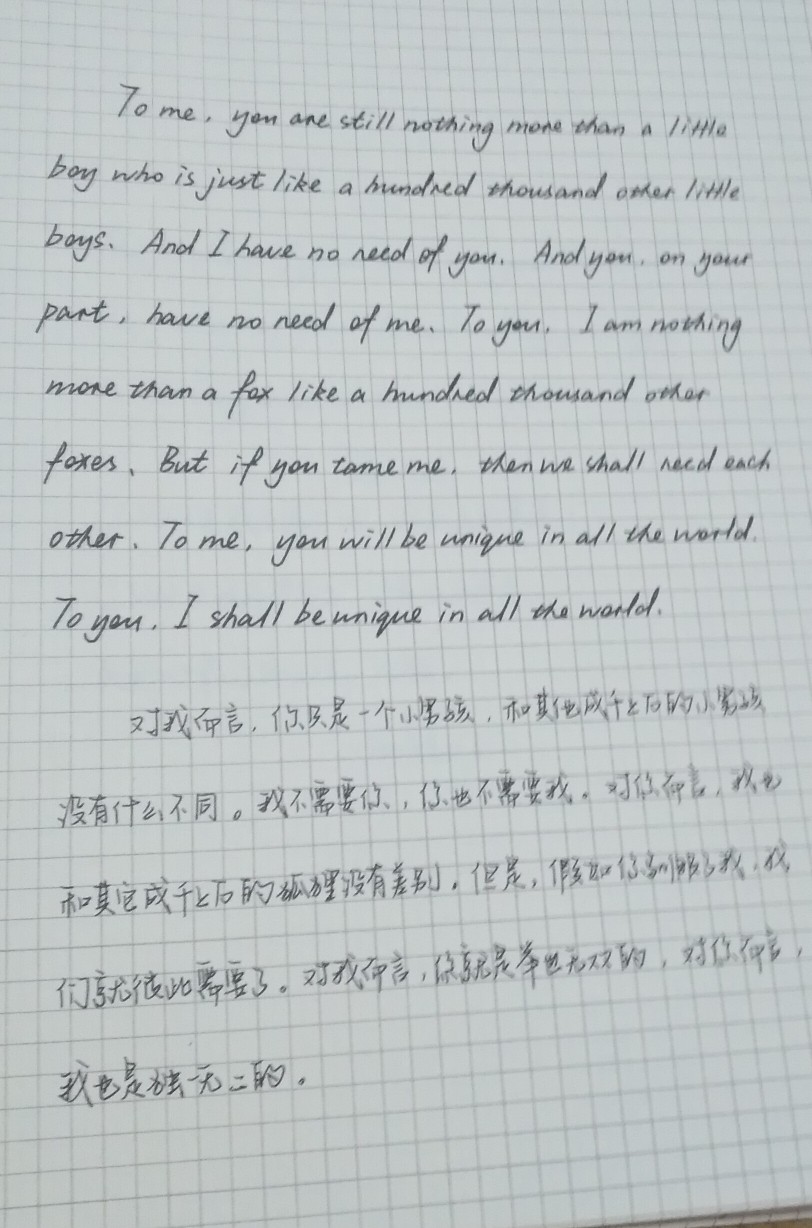 To me, you are still nothing more than a little
boy who is just like a hundred thousand other little
boys. And I have no need of you. And you, on your
part, have no need of me. To you, I am nothing
more than a fox like a hundred thousand other
foxes. But if you tame me, then we shall need each
other. To me, you will be unique in all the world.
To you, I shall be unique in all the world.
对我而言，你只是一个小男孩，和其他成千上万的小男孩
没有什么不同。我不需要你，你也不需要我。对你而言，我也
和其它成千上万的狐狸没有差别。但是，假如你驯服了我，我
们就彼此需要了。对我而言，你就是举世无双的，对你而言，
我也是独一无二的。